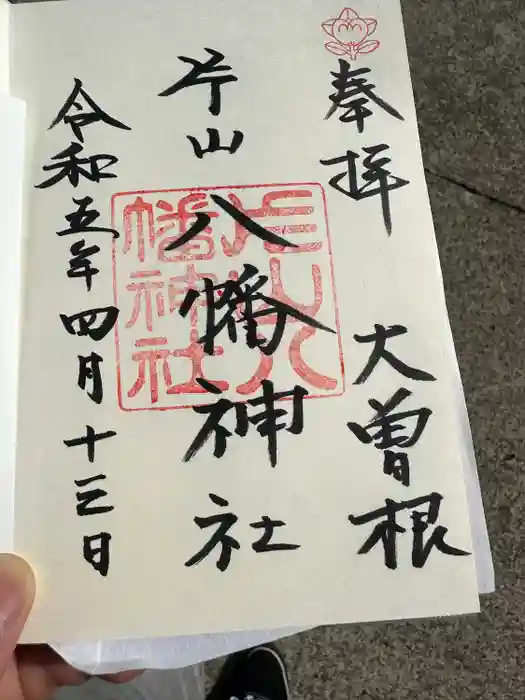 奉拝 大曽根
片山八幡神社
片山八幡神社
令和五年四月十三日